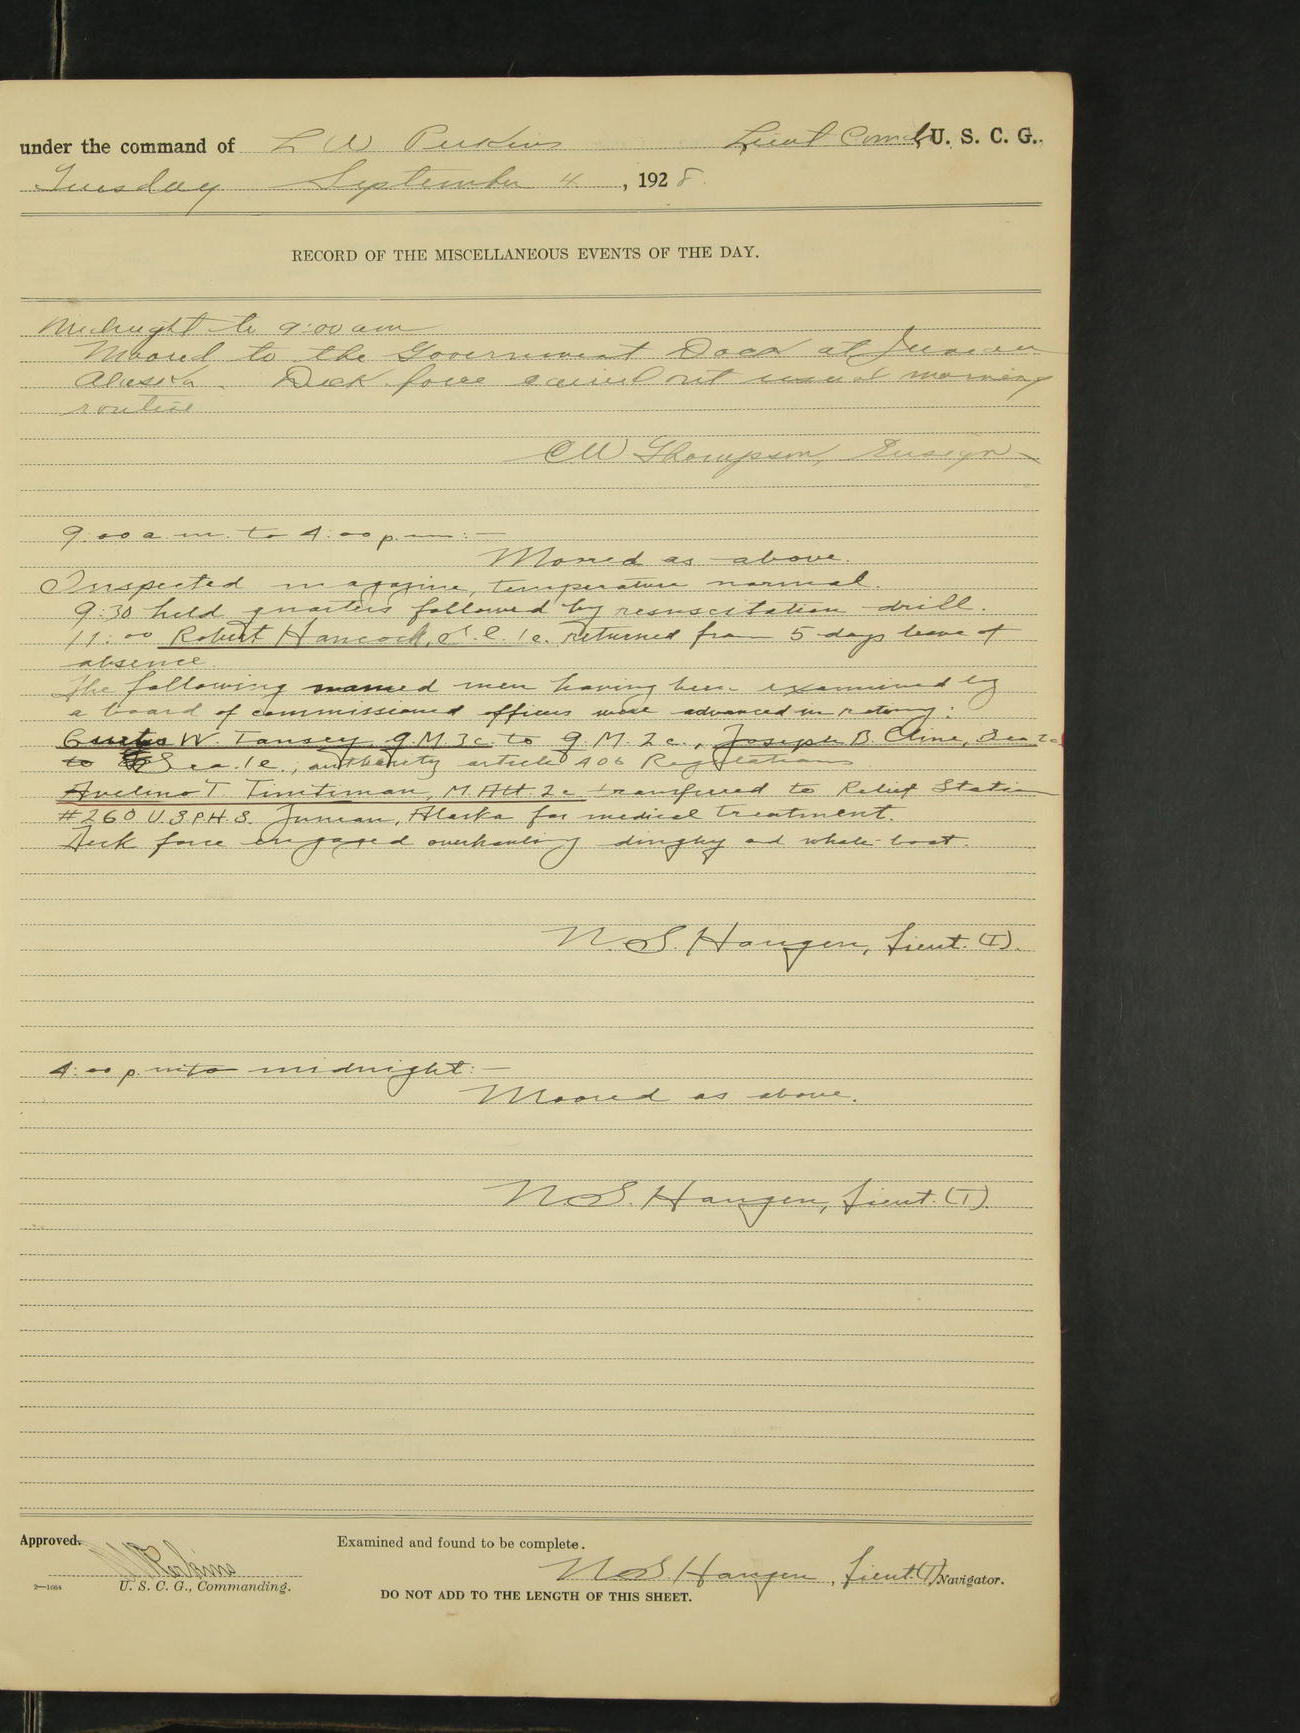 under the command of L W Perkins Lieut Comdr, U. S. C. G.
Tuesday September 4, 1928
RECORD OF THE MISCELLANEOUS EVENTS OF THE DAY.
Midnight to 9:00 am
Moored to the Government Dock at Juneau
Alaska. Deck force carried out usual morning
routine
C W Thompson, Ensign
9:00 a.m. to 4:00 p.m.:—
Moored as above.
Inspected magazine, temperature normal.
9:30 held quarters followed by resuscitation drill.
11:00 Robert Hancock, S.C. 1c. returned from 5 days leave of
absence.
The following named men having been examined by
a board of commissioned officers were advanced in rating:
Curtis W. Tansey, Q.M. 3c. to Q.M. 2c., Joseph B. Cline, Sea 2c
to Sea. 1c., authority article 406 Regulations
Avelino T. Timtiman, M.Att. 2c transferred to Relief Station
#260 U.S.P.H.S. Juneau, Alaska for medical treatment.
Deck force engaged overhauling dinghy and whale-boat.
N. S. Haugen, Lieut. (T).
4:00 p.m. to midnight:—
Moored as above.
N. S. Haugen, Lieut. (T).
Approved.
Examined and found to be complete.
L W Perkins
N. S. Haugen, Lieut. (T) Navigator.
2—1664
U. S. C. G., Commanding.
DO NOT ADD TO THE LENGTH OF THIS SHEET.